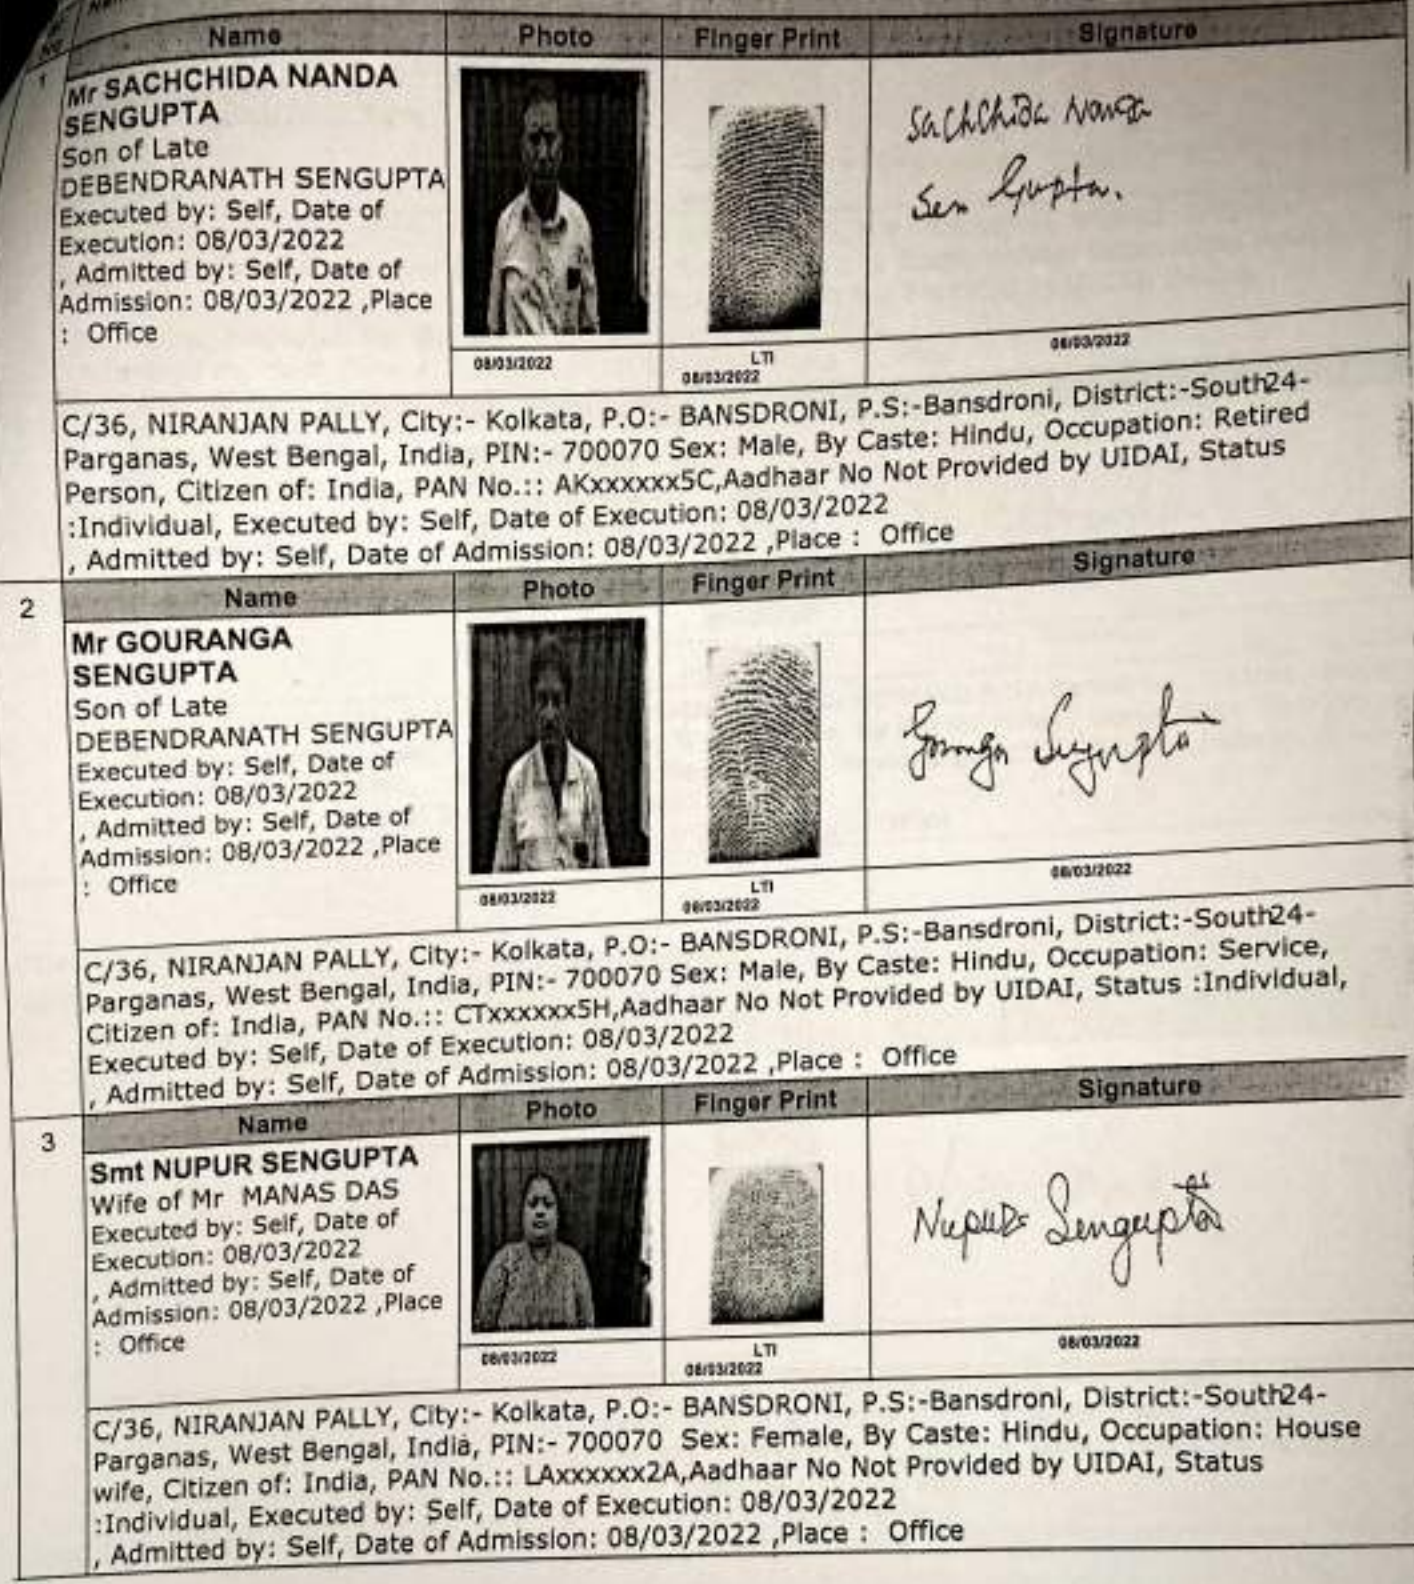 Name Photo Finger Print Signature
1
Mr SACHCHIDA NANDA
SENGUPTA
Son of Late
DEBENDRANATH SENGUPTA
Executed by: Self, Date of
Execution: 08/03/2022
, Admitted by: Self, Date of
Admission: 08/03/2022 ,Place
: Office
Sachchida Nanda
Sen Gupta.
08/03/2022
LTI
08/03/2022
08/03/2022
C/36, NIRANJAN PALLY, City:- Kolkata, P.O:- BANSDRONI, P.S:-Bansdroni, District:-South24-
Parganas, West Bengal, India, PIN:- 700070 Sex: Male, By Caste: Hindu, Occupation: Retired
Person, Citizen of: India, PAN No.:: AKxxxxxx5C,Aadhaar No Not Provided by UIDAI, Status
:Individual, Executed by: Self, Date of Execution: 08/03/2022
, Admitted by: Self, Date of Admission: 08/03/2022 ,Place : Office
2
Name Photo Finger Print Signature
Mr GOURANGA
SENGUPTA
Son of Late
DEBENDRANATH SENGUPTA
Executed by: Self, Date of
Execution: 08/03/2022
, Admitted by: Self, Date of
Admission: 08/03/2022 ,Place
: Office
Gouranga Sengupta
08/03/2022
LTI
08/03/2022
08/03/2022
C/36, NIRANJAN PALLY, City:- Kolkata, P.O:- BANSDRONI, P.S:-Bansdroni, District:-South24-
Parganas, West Bengal, India, PIN:- 700070 Sex: Male, By Caste: Hindu, Occupation: Service,
Citizen of: India, PAN No.:: CTxxxxxx5H,Aadhaar No Not Provided by UIDAI, Status :Individual,
Executed by: Self, Date of Execution: 08/03/2022
, Admitted by: Self, Date of Admission: 08/03/2022 ,Place : Office
3
Name Photo Finger Print Signature
Smt NUPUR SENGUPTA
Wife of Mr MANAS DAS
Executed by: Self, Date of
Execution: 08/03/2022
, Admitted by: Self, Date of
Admission: 08/03/2022 ,Place
: Office
Nupur Sengupta
08/03/2022
LTI
08/03/2022
08/03/2022
C/36, NIRANJAN PALLY, City:- Kolkata, P.O:- BANSDRONI, P.S:-Bansdroni, District:-South24-
Parganas, West Bengal, India, PIN:- 700070 Sex: Female, By Caste: Hindu, Occupation: House
wife, Citizen of: India, PAN No.:: LAxxxxxx2A,Aadhaar No Not Provided by UIDAI, Status
:Individual, Executed by: Self, Date of Execution: 08/03/2022
, Admitted by: Self, Date of Admission: 08/03/2022 ,Place : Office